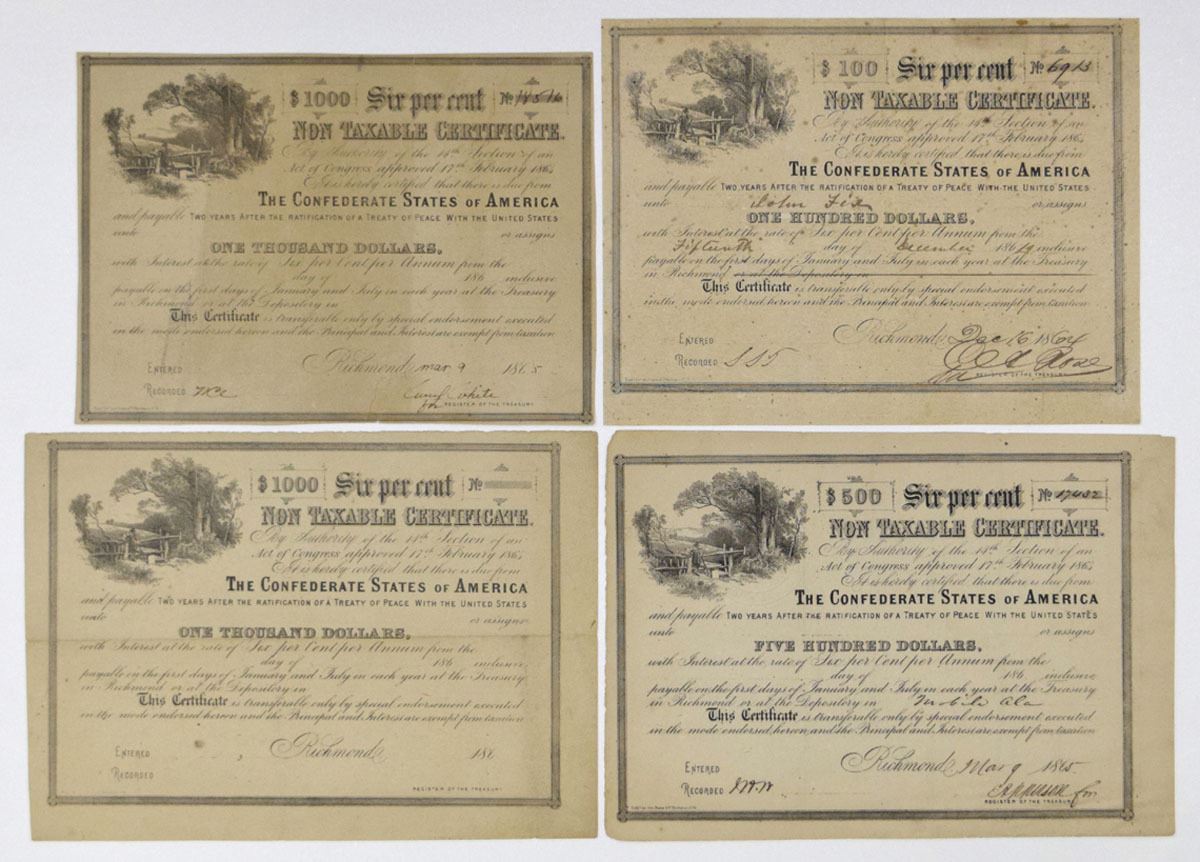 $1000 Six per cent No
NON TAXABLE CERTIFICATE.
By Authority of the 14th Section of an
Act of Congress approved 17th February 1864
It is hereby certified that there is due from
THE CONFEDERATE STATES OF AMERICA
and payable TWO YEARS AFTER THE RATIFICATION OF A TREATY OF PEACE WITH THE UNITED STATES
unto or assigns
ONE THOUSAND DOLLARS,
with Interest at the rate of Six per Cent per Annum from the
day of 186 inclusive
payable on the first days of January and July in each year at the Treasury
in Richmond or at the Depository in
This Certificate is transferable only by special endorsement executed
in the mode endorsed hereon and the Principal and Interest are exempt from taxation
Richmond Mar 9 1865
ENTERED
RECORDED
for REGISTER OF THE TREASURY
$100 Six per cent No 6913
NON TAXABLE CERTIFICATE.
By Authority of the 14th Section of an
Act of Congress approved 17th February 1864
It is hereby certified that there is due from
THE CONFEDERATE STATES OF AMERICA
and payable TWO YEARS AFTER THE RATIFICATION OF A TREATY OF PEACE WITH THE UNITED STATES
unto John Fix or assigns
ONE HUNDRED DOLLARS,
with Interest at the rate of Six per Cent per Annum from the
Fifteenth day of December 1864 inclusive
payable on the first days of January and July in each year at the Treasury
in Richmond or at the Depository in
This Certificate is transferable only by special endorsement executed
in the mode endorsed hereon and the Principal and Interest are exempt from taxation
Richmond Dec 16 1864
ENTERED
RECORDED
REGISTER OF THE TREASURY
$1000 Six per cent No
NON TAXABLE CERTIFICATE.
By Authority of the 14th Section of an
Act of Congress approved 17th February 1864
It is hereby certified that there is due from
THE CONFEDERATE STATES OF AMERICA
and payable TWO YEARS AFTER THE RATIFICATION OF A TREATY OF PEACE WITH THE UNITED STATES
unto or assigns
ONE THOUSAND DOLLARS,
with Interest at the rate of Six per Cent per Annum from the
day of 186 inclusive
payable on the first days of January and July in each year at the Treasury
in Richmond or at the Depository in
This Certificate is transferable only by special endorsement executed
in the mode endorsed hereon and the Principal and Interest are exempt from taxation
ENTERED Richmond 186
RECORDED
REGISTER OF THE TREASURY
$500 Six per cent No 17432
NON TAXABLE CERTIFICATE.
By Authority of the 14th Section of an
Act of Congress approved 17th February 1864
It is hereby certified that there is due from
THE CONFEDERATE STATES OF AMERICA
and payable TWO YEARS AFTER THE RATIFICATION OF A TREATY OF PEACE WITH THE UNITED STATES
unto or assigns
FIVE HUNDRED DOLLARS,
with Interest at the rate of Six per Cent per Annum from the
day of 186 inclusive
payable on the first days of January and July in each year at the Treasury
in Richmond or at the Depository in Mobile Ala
This Certificate is transferable only by special endorsement executed
in the mode endorsed hereon and the Principal and Interest are exempt from taxation
Richmond Mar 9 1865
ENTERED
RECORDED
for
REGISTER OF THE TREASURY